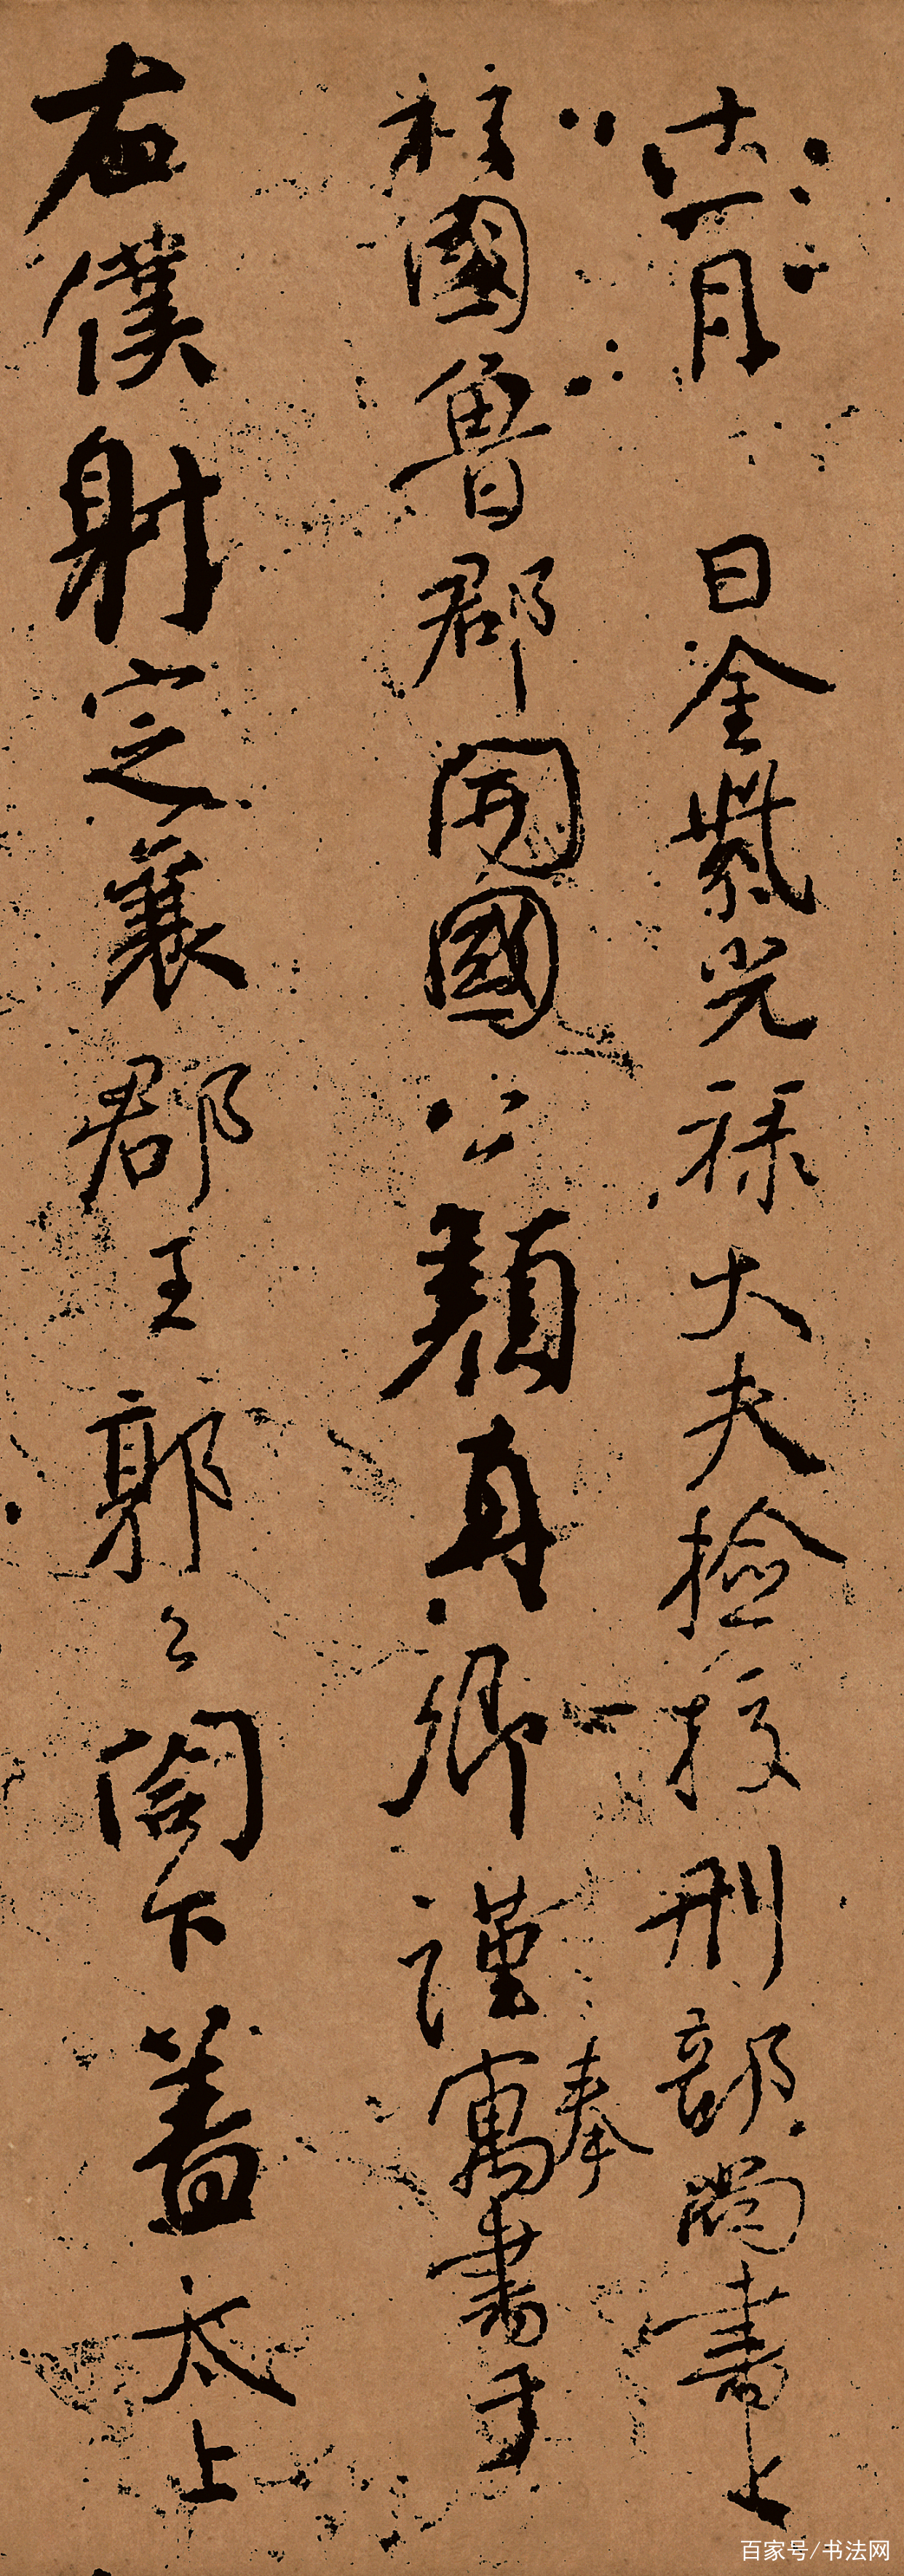 十一月日金紫光祿大夫檢校刑部尚書上
柱國魯郡開國公顏真卿謹奉寓書于
右僕射定襄郡王郭公閤下蓋太上
百家号/书法网